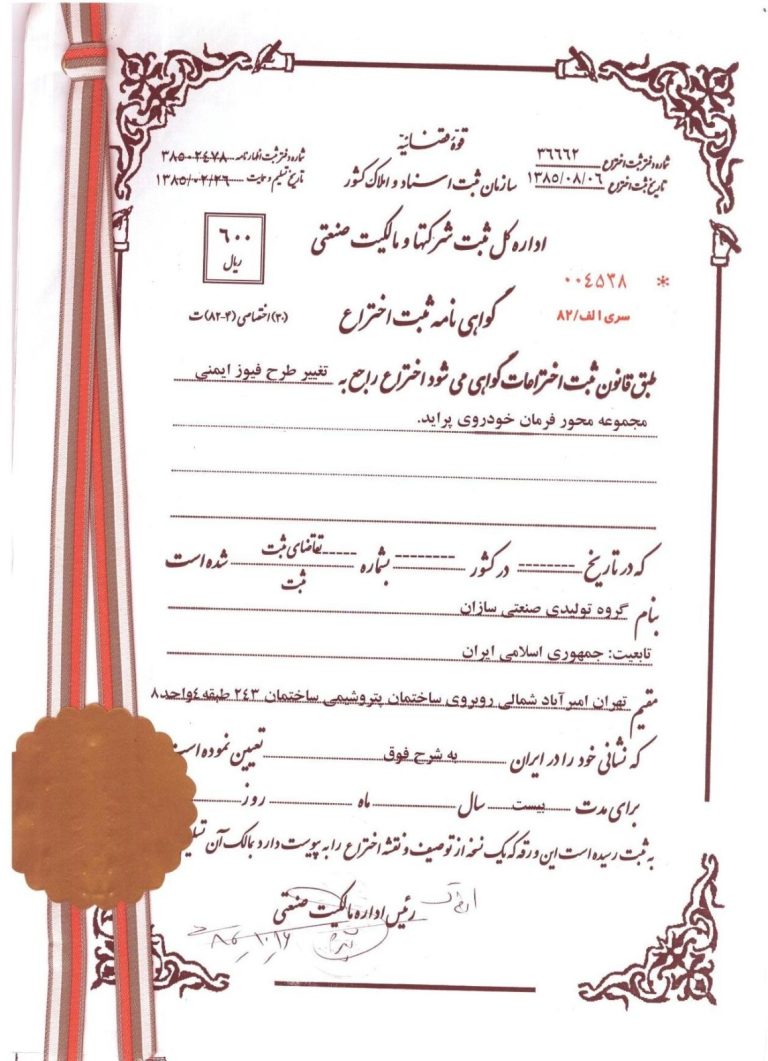 قوهٔ قضائیه
شماره دفتر ثبت اختراع ۳۶۶۶۲
شماره دفتر ثبت اظهارنامه ۳۸۵۰۲۴۷۸
سازمان ثبت اسناد و املاک کشور
تاریخ ثبت اختراع ۱۳۸۵/۰۸/۰۶
تاریخ تسلیم و حمایت ۱۳۸۵/۰۲/۲۶
اداره کل ثبت شرکتها و مالکیت صنعتی
۶۰۰
ریال
* ۰۰۴۵۳۸
سری الف/۸۲
گواهی نامه ثبت اختراع
(۲۰) اختصاصی (۴-۸۲) ت
طبق قانون ثبت اختراعات گواهی می شود اختراع راجع به تغییر طرح فیوز ایمنی
مجموعه محور فرمان خودروی پراید.
که در تاریخ -------- در کشور -------- بشماره ----- تقاضای ثبت شده است
ثبت
بنام گروه تولیدی صنعتی سازان
تابعیت: جمهوری اسلامی ایران
مقیم تهران امیرآباد شمالی روبروی ساختمان پتروشیمی ساختمان ۲۴۳ طبقه ٤واحد۸
که نشانی خود را در ایران به شرح فوق تعیین نموده است
برای مدت بیست سال ماه روز
به ثبت رسیده است این ورقه که یک نسخه از توصیف و نقشه اختراع را به پیوست دارد بمالک آن
رئیس اداره مالکیت صنعتی